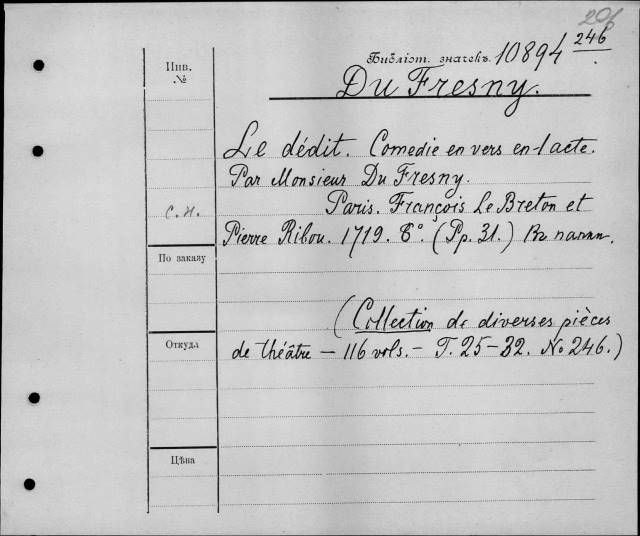 206
Библіот. значекъ. 10894 246
Инв. №
Du Fresny.
Le dédit. Comedie en vers en 1 acte.
Par Monsieur Du Fresny.
Paris. François Le Breton et
С. Н.
Pierre Ribou. 1719. 8°. (Pp. 31.) Въ папкѣ.
По заказу
(Collection de diverses pièces
Откуда
de théâtre — 116 vols. — T. 25-32. No 246.)
Цѣна